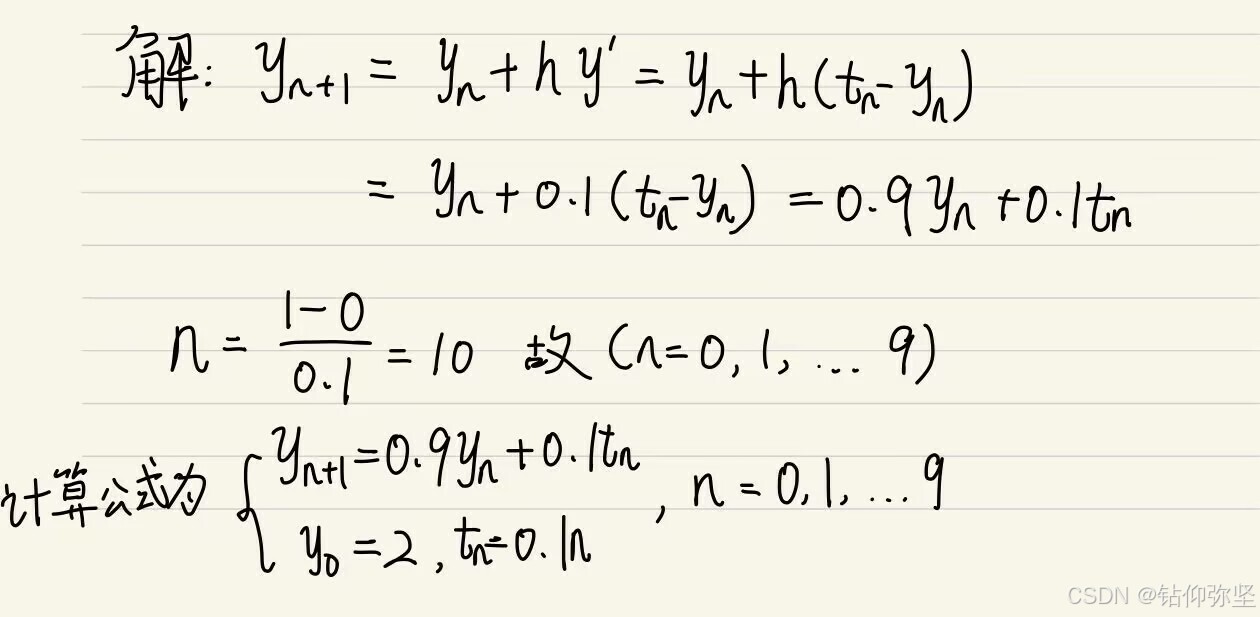 解: yₙ₊₁ = yₙ + h y′ = yₙ + h(tₙ - yₙ)
= yₙ + 0.1(tₙ - yₙ) = 0.9yₙ + 0.1tₙ
n = (1-0)/0.1 = 10 故 (n=0, 1, ... 9)
计算公式为 { yₙ₊₁ = 0.9yₙ + 0.1tₙ , n = 0, 1, ... 9
y₀ = 2, tₙ = 0.1n
CSDN @钻仰弥坚